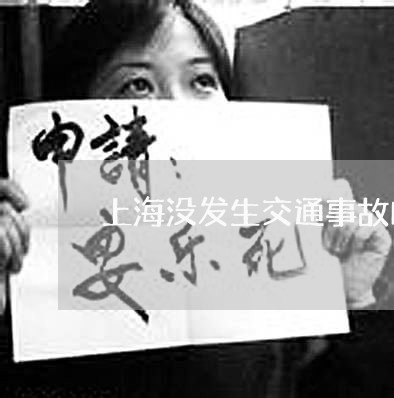 申請:
上海没发生交通事故
安乐死